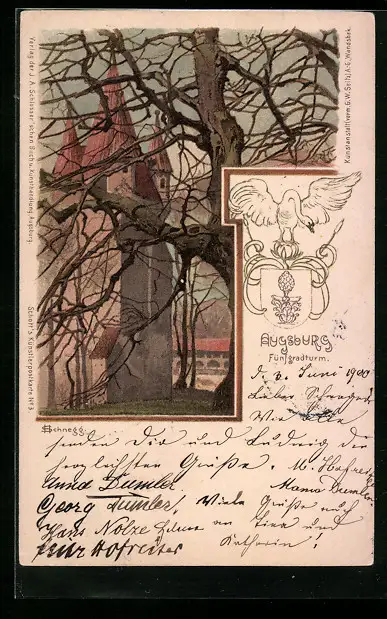 Verlag der J. A. Schlosser'schen Buch- u. Kunsthandlung, Augsburg.
Schott's Künstlerpostkarte No 3.
Kunstanstalt vorm. G. W. Seitz, A.-G., Wandsbek.
AUGSBURG
Fünfgradturm.
Schnegg.
d. 3. Juni 1900
Lieber
Wie
senden Dir und Ludwig die
herzlichsten Grüße. M. Hofreiter
Anna Dumler Mama Dumler
Georg Dumler, Viele Grüße auch
Hans Nolze an und
Hofreiter Katharin!